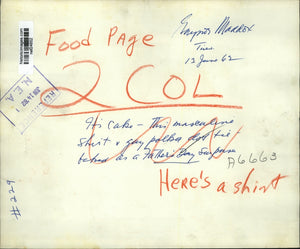 Food Page
Gaynor Maddox
Tues
13 June 62
2 COL
N.E.A.
His Cake - This masculine
shirt & gay polka dot tie
as a Father's Day Surprise
A6663
Here's a shirt
#229